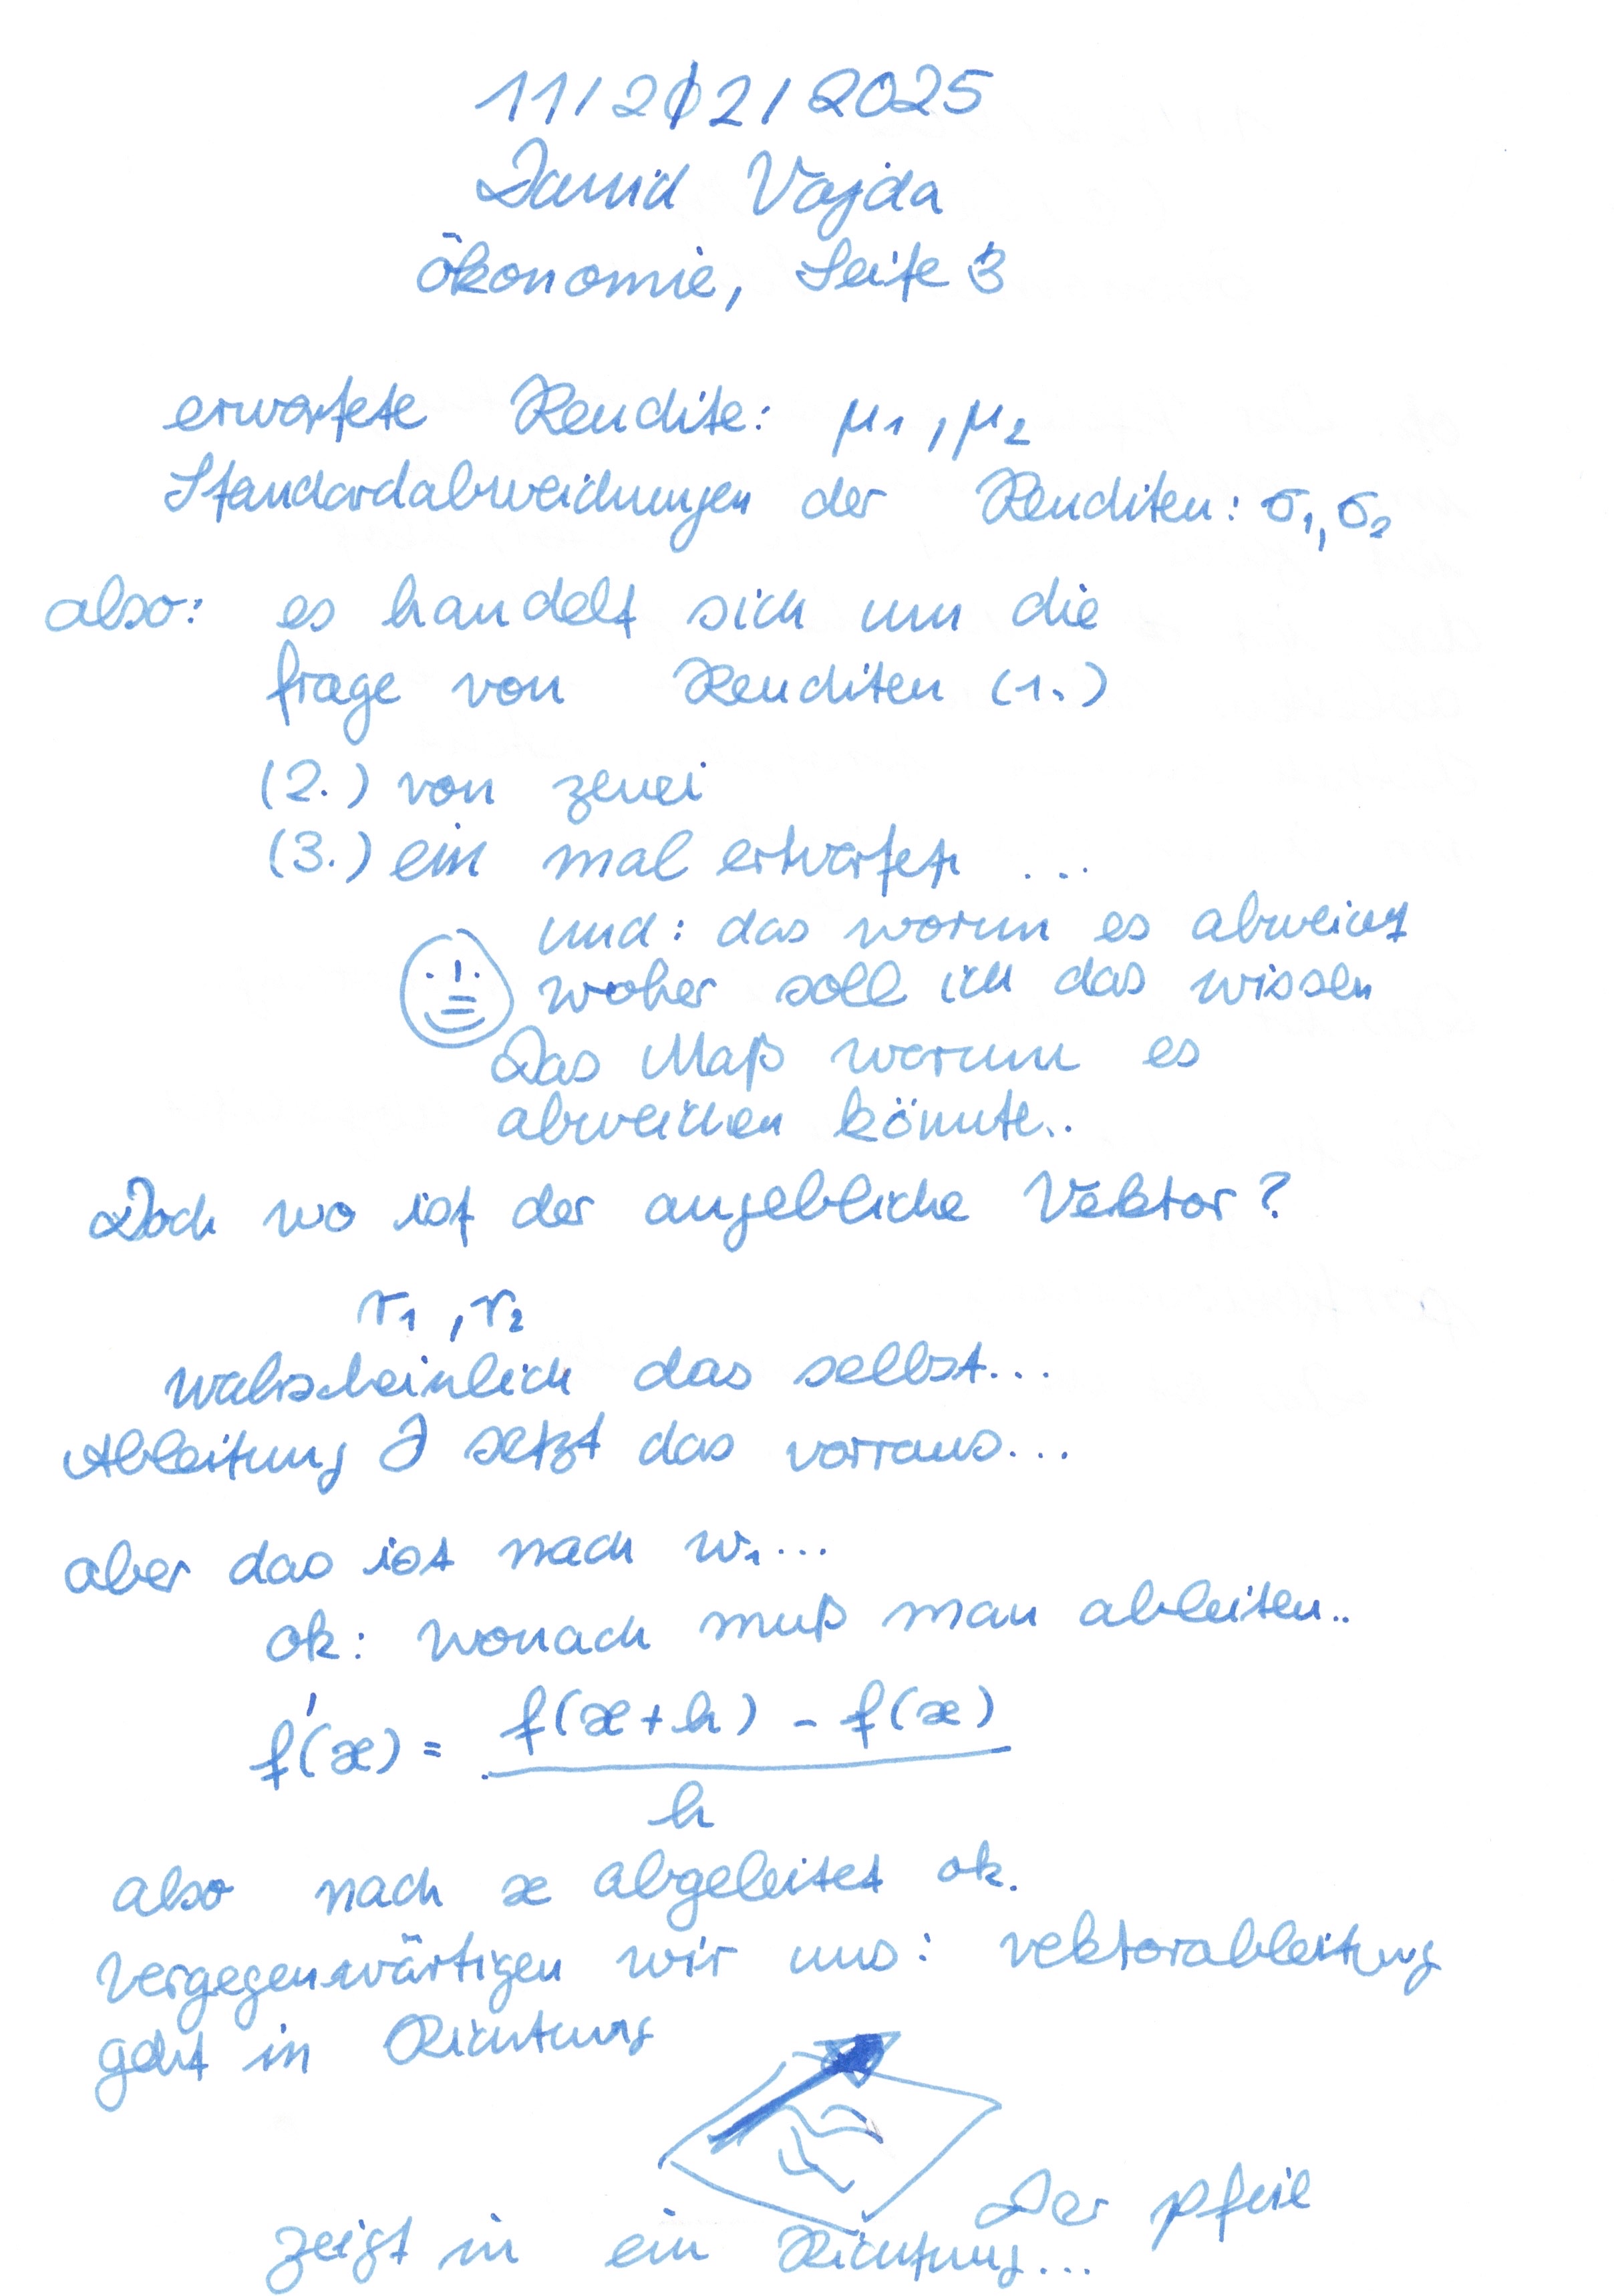 11/202/2025
David Vajda
Ökonomie, Seite 3
erwartete Rendite: μ₁, μ₂
Standardabweichungen der Renditen: σ₁, σ₂
also: es handelt sich um die
frage von Renditen (1.)
(2.) von zwei
(3.) ein mal erwartete ...
und: das worum es abweicht
woher soll ich das wissen
Das Maß worum es
abweichen könnte..
Doch wo ist der angebliche Vektor?
r₁, r₂
wahrscheinlich das selbst...
Ableitung ∂ setzt das vorraus...
aber das ist nach w₁...
ok: wonach muß man ableiten..
f'(x) = (f(x+h) - f(x)) / h
also nach x abgeleitet ok.
vergegenwärtigen wir uns: vektorableitung
geht in Richtung
Der pfeil
zeigt in ein Richtung...